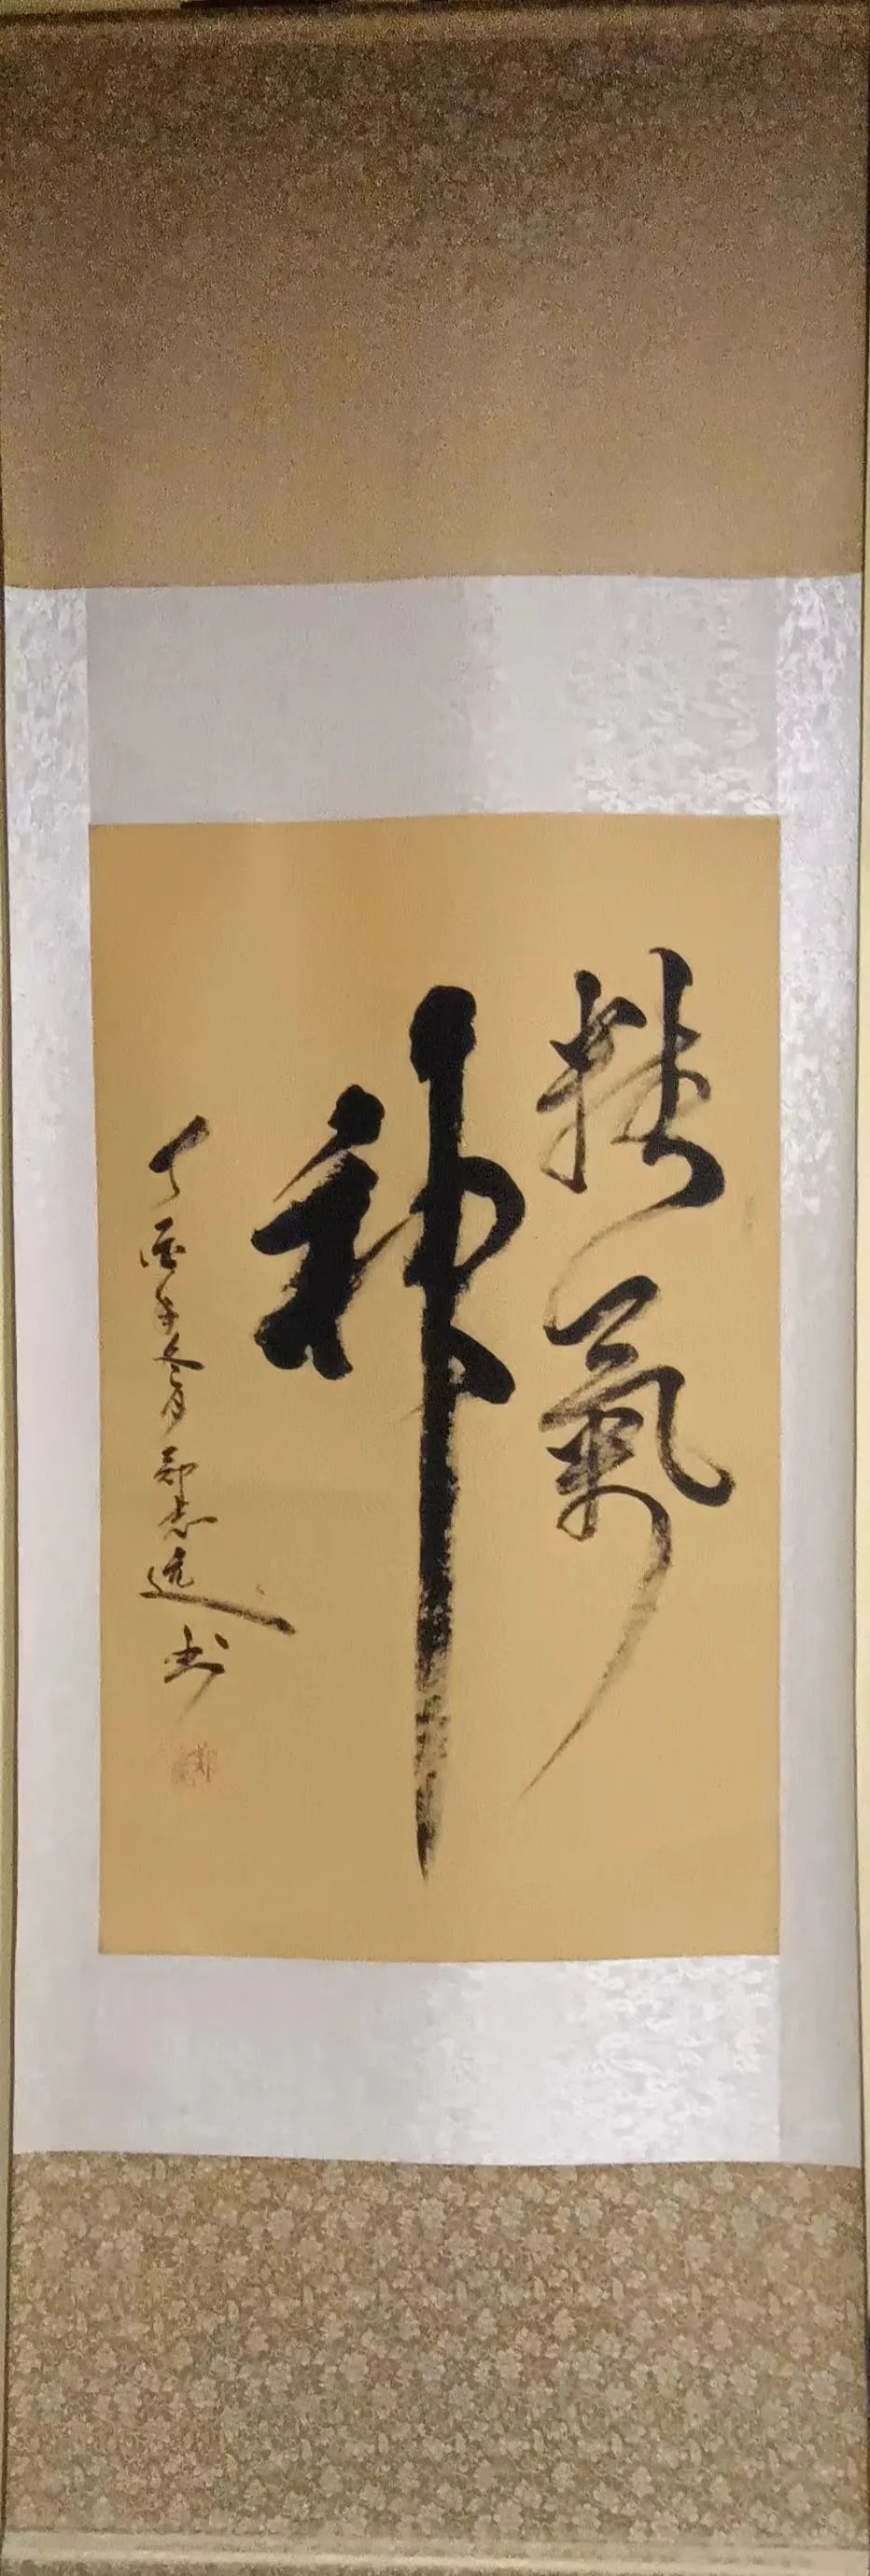 精氣
神
丁酉年冬月鄭志遠书